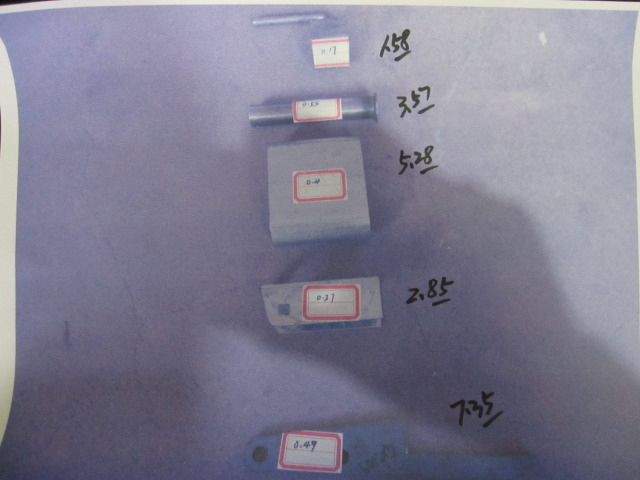 0.17
1.58
0.55
3.57
0.4
5.28
0.37
2.85
7.35
0.49